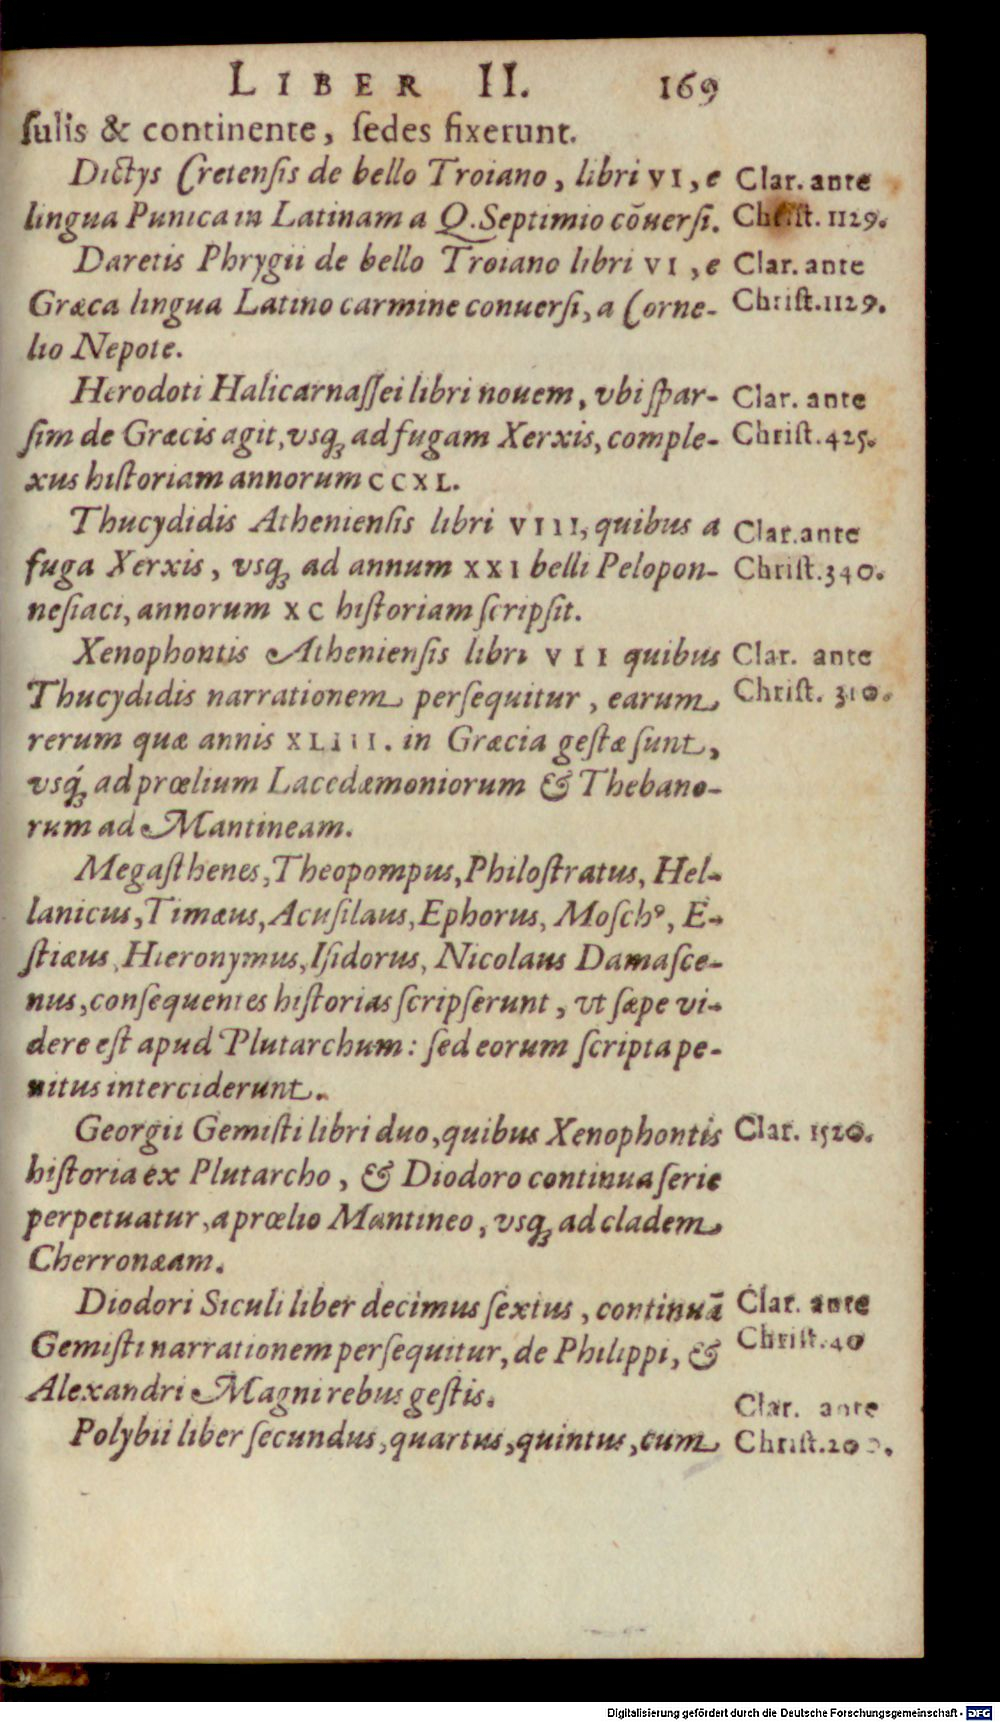 LIBER II. 169
ſulis & continente, ſedes fixerunt.
Dictys Cretenſis de bello Troiano, libri VI, e
lingua Punica in Latinam a Q. Septimio cōuerſi.
Clar. ante
Chriſt. 1129.
Daretis Phrygii de bello Troiano libri VI, e
Græca lingua Latino carmine conuerſi, a Corne-
lio Nepote.
Clar. ante
Chriſt. 1129.
Herodoti Halicarnaſſei libri nouem, vbi ſpar-
ſim de Græcis agit, vsq́ꝫ ad fugam Xerxis, comple-
xus hiſtoriam annorum CCXL.
Clar. ante
Chriſt. 425.
Thucydidis Athenienſis libri VIII, quibus a
fuga Xerxis, vsqꝫ ad annum XXI belli Pelopon-
neſiaci, annorum XC hiſtoriam ſcripſit.
Clar. ante
Chriſt. 340.
Xenophontis Athenienſis libri VII quibus
Thucydidis narrationem perſequitur, earum
rerum quæ annis XLIII. in Græcia geſtæ ſunt,
vsq́ꝫ ad prœlium Lacedæmoniorum & Thebano-
rum ad Mantineam.
Clar. ante
Chriſt. 310.
Megaſthenes, Theopompus, Philoſtratus, Hel-
lanicus, Timæus, Acuſilaus, Ephorus, Moſchꝰ, E-
ſtiæus, Hieronymus, Iſidorus, Nicolaus Damaſce-
nus, conſequentes hiſtorias ſcripſerunt, vt ſæpe vi-
dere eſt apud Plutarchum: ſed eorum ſcripta pe-
nitus interciderunt.
Georgii Gemiſti libri duo, quibus Xenophontis
hiſtoria ex Plutarcho, & Diodoro continua ſerie
perpetuatur, a prœlio Mantineo, vsqꝫ ad cladem
Cherronæam.
Clar. 1520.
Diodori Siculi liber decimus ſextus, continuā
Gemiſti narrationem perſequitur, de Philippi, &
Alexandri Magni rebus geſtis.
Clar. ante
Chriſt. 40
Polybii liber ſecundus, quartus, quintus, cum
Clar. ante
Chriſt. 200.
Digitalisierung gefördert durch die Deutsche Forschungsgemeinschaft - DFG